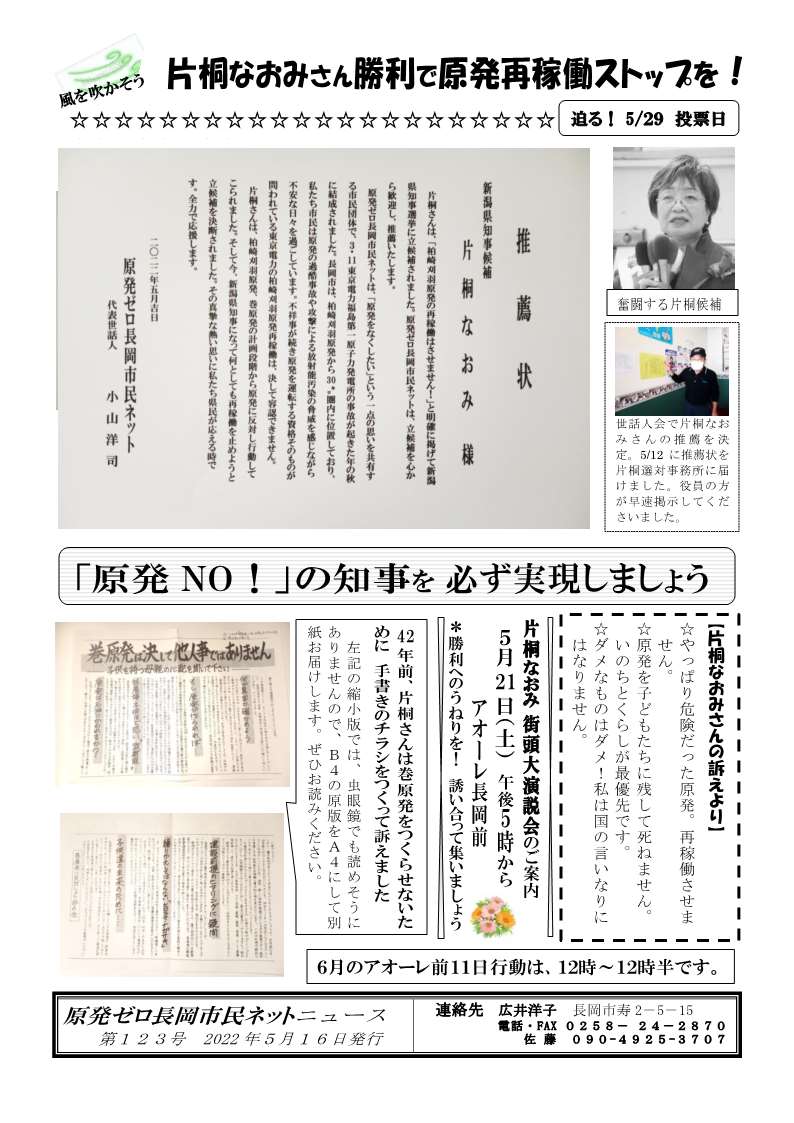 風を吹かそう
片桐なおみさん勝利で原発再稼働ストップを！
☆☆☆☆☆☆☆☆☆☆☆☆☆☆☆☆☆☆☆☆☆☆
迫る！ 5/29 投票日
推薦状
新潟県知事候補
片桐なおみ 様
片桐さんは、「柏崎刈羽原発の再稼働はさせません！」と明確に掲げて新潟
県知事選挙に立候補されました。原発ゼロ長岡市民ネットは、立候補を心か
ら歓迎し、推薦いたします。
原発ゼロ長岡市民ネットは、「原発をなくしたい」という一点の思いを共有す
る市民団体で、3・11東京電力福島第一原子力発電所の事故が起きた年の秋
に結成されました。長岡市は、柏崎刈羽原発から30㌔圏内に位置しており、
私たち市民は原発の過酷事故や攻撃による放射能汚染の脅威を感じながら
不安な日々を過ごしています。不祥事が続き原発を運転する資格そのものが
問われている東京電力の柏崎刈羽原発再稼働は、決して容認できません。
片桐さんは、柏崎刈羽原発、巻原発の計画段階から原発に反対し行動して
こられました。そして今、新潟県知事になって何としても再稼働を止めようと
立候補を決断されました。その真摯な熱い思いに私たち県民が応える時で
す。全力で応援します。
二〇二二年五月吉日
原発ゼロ長岡市民ネット
代表世話人 小山洋司
奮闘する片桐候補
世話人会で片桐なお
みさんの推薦を決
定。5/12 に推薦状を
片桐選対事務所に届
けました。役員の方
が早速掲示してくだ
さいました。
「原発 NO！」の知事を 必ず実現しましょう
【片桐なおみさんの訴えより】
☆やっぱり危険だった原発。再稼働させま
せん。
☆原発を子どもたちに残して死ねません。
いのちとくらしが最優先です。
☆ダメなものはダメ！私は国の言いなりに
はなりません。
片桐なおみ 街頭大演説会のご案内
5月21日(土) 午後5時から
アオーレ長岡前
＊勝利へのうねりを！ 誘い合って集いましょう
42年前、片桐さんは巻原発をつくらせないた
めに 手書きのチラシをつくって訴えました
左記の縮小版では、虫眼鏡でも読めそうに
ありませんので、B4の原版をA4にして別
紙お届けします。ぜひお読みください。
巻原発は決して他人事ではありません
6月のアオーレ前11日行動は、12時～12時半です。
原発ゼロ長岡市民ネットニュース
第１２３号 2022年５月１６日発行
連絡先 広井洋子 長岡市寿２－５－15
電話・FAX ０２５８－ ２４－２８７０
佐 藤 ０９０-４９２５-３７０７